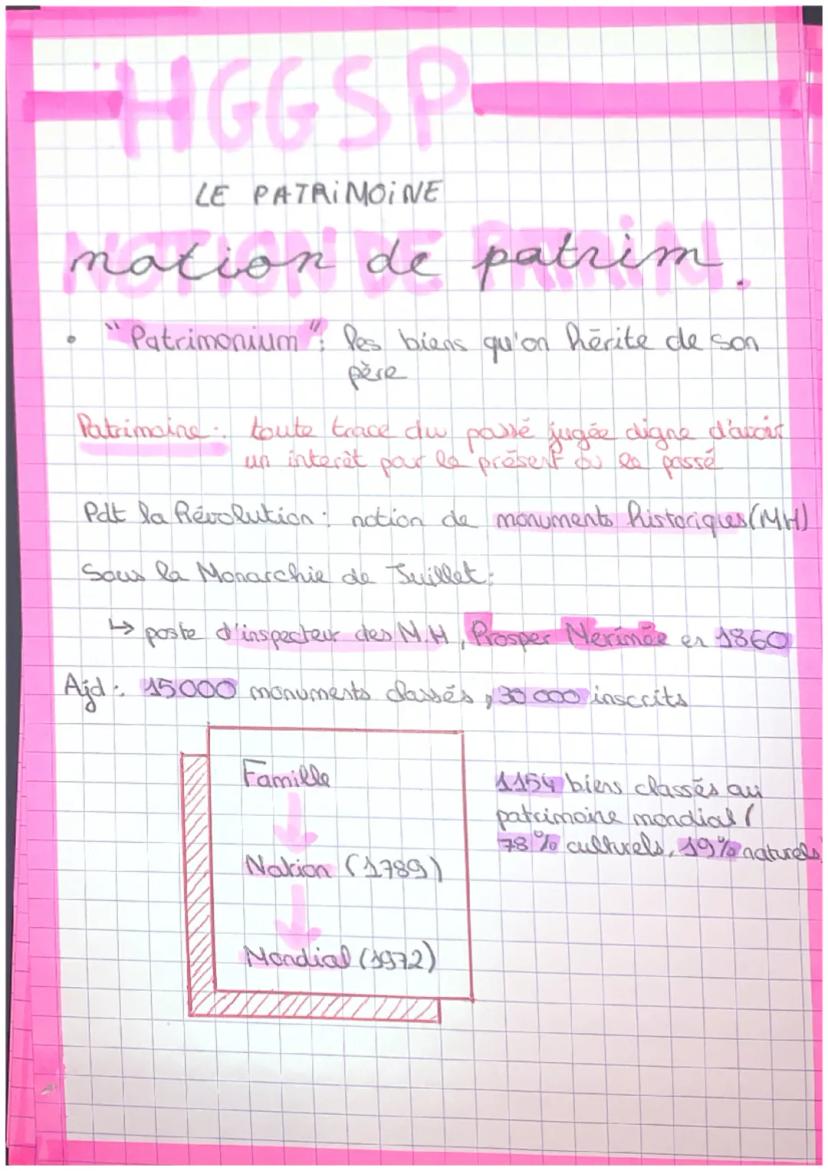 HGGSP
LE PATRIMOINE
notion de patrim.
• "Patrimonium": les biens qu'on hérite de son
père
Patrimoine: toute trace du passé jugée digne d'avoir
un interêt par le présent ou le passé
Pdt la Révolution: notion de monuments historiques (MH)
Sous la Monarchie de Juillet:
↳ poste d'inspecteur des MH, Prosper Merimée en 1860
Ajd: 15000 monuments classés, 30 000 inscrits
Famille
↓
Nation (1789)
↓
Mondial (1972)
1154 biens classés au
patrimoine mondial (
78% culturels, 19% naturels